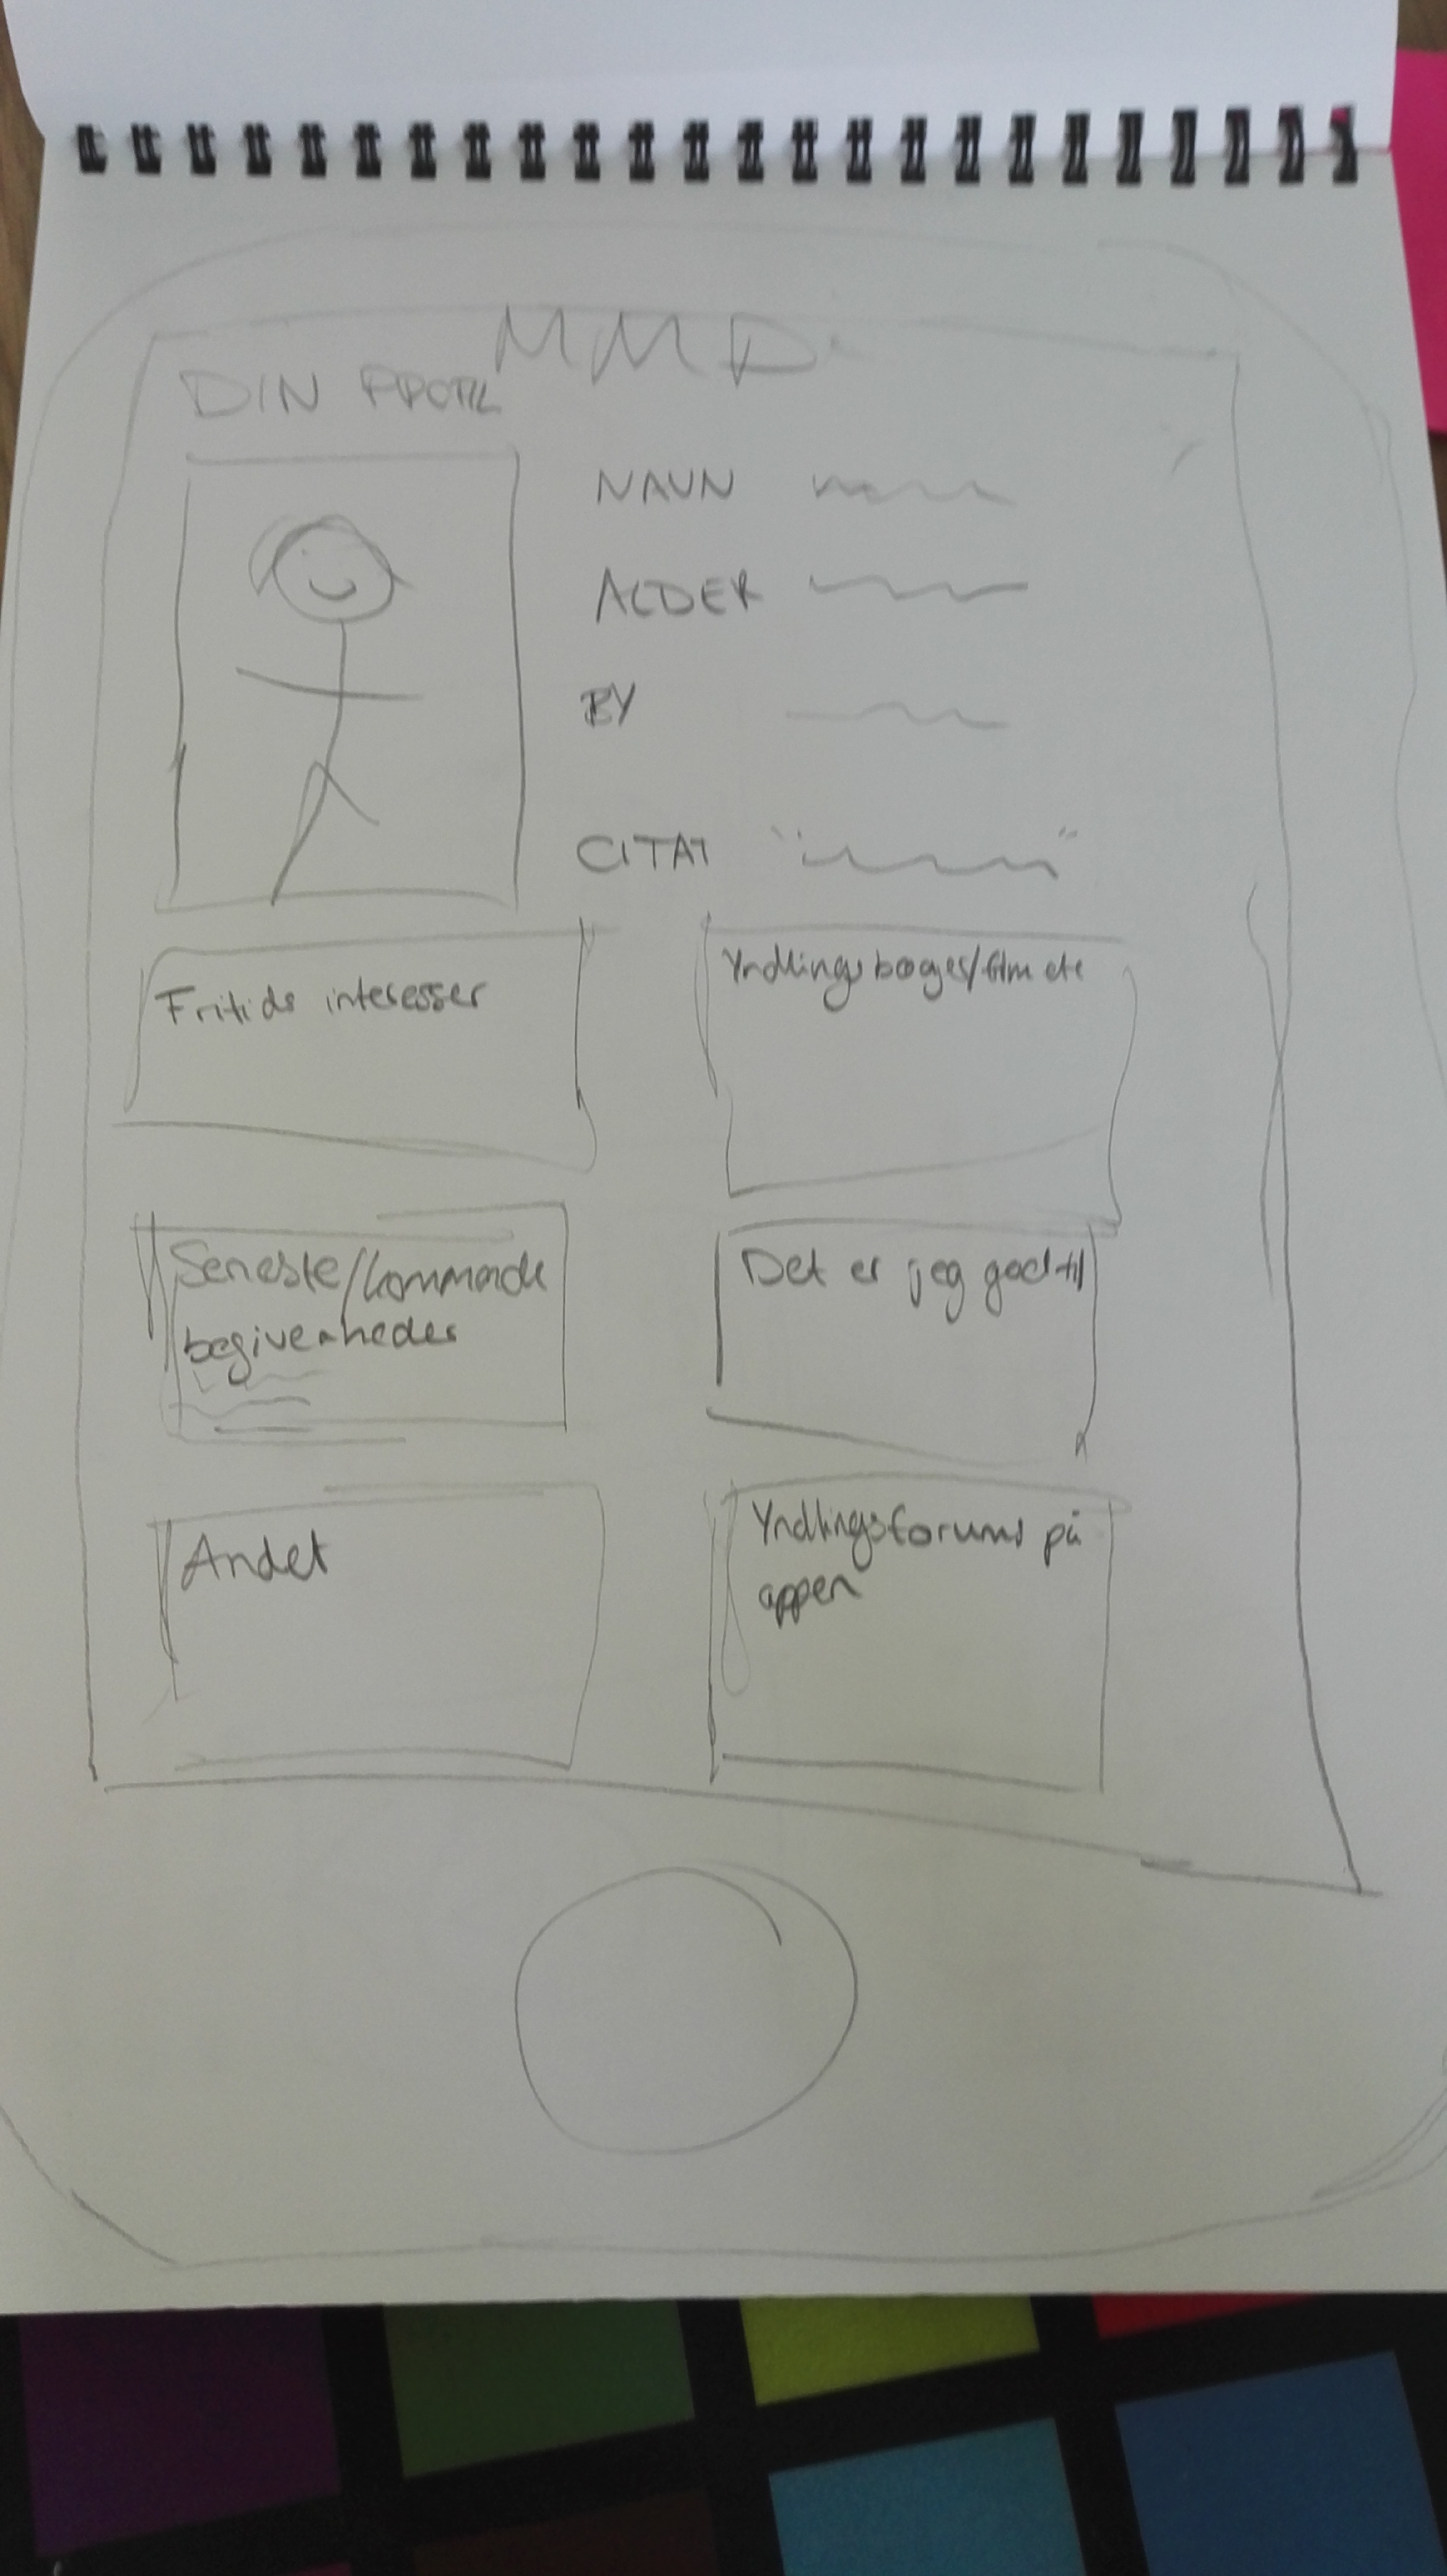 MMD
DIN PROFIL
NAVN
ALDER
BY
CITAT " "
Fritids interesser
Yndlingsbøger/film etc
Seneste/kommende
begivenheder
Det er jeg god til
Andet
Yndlingsforums på
appen